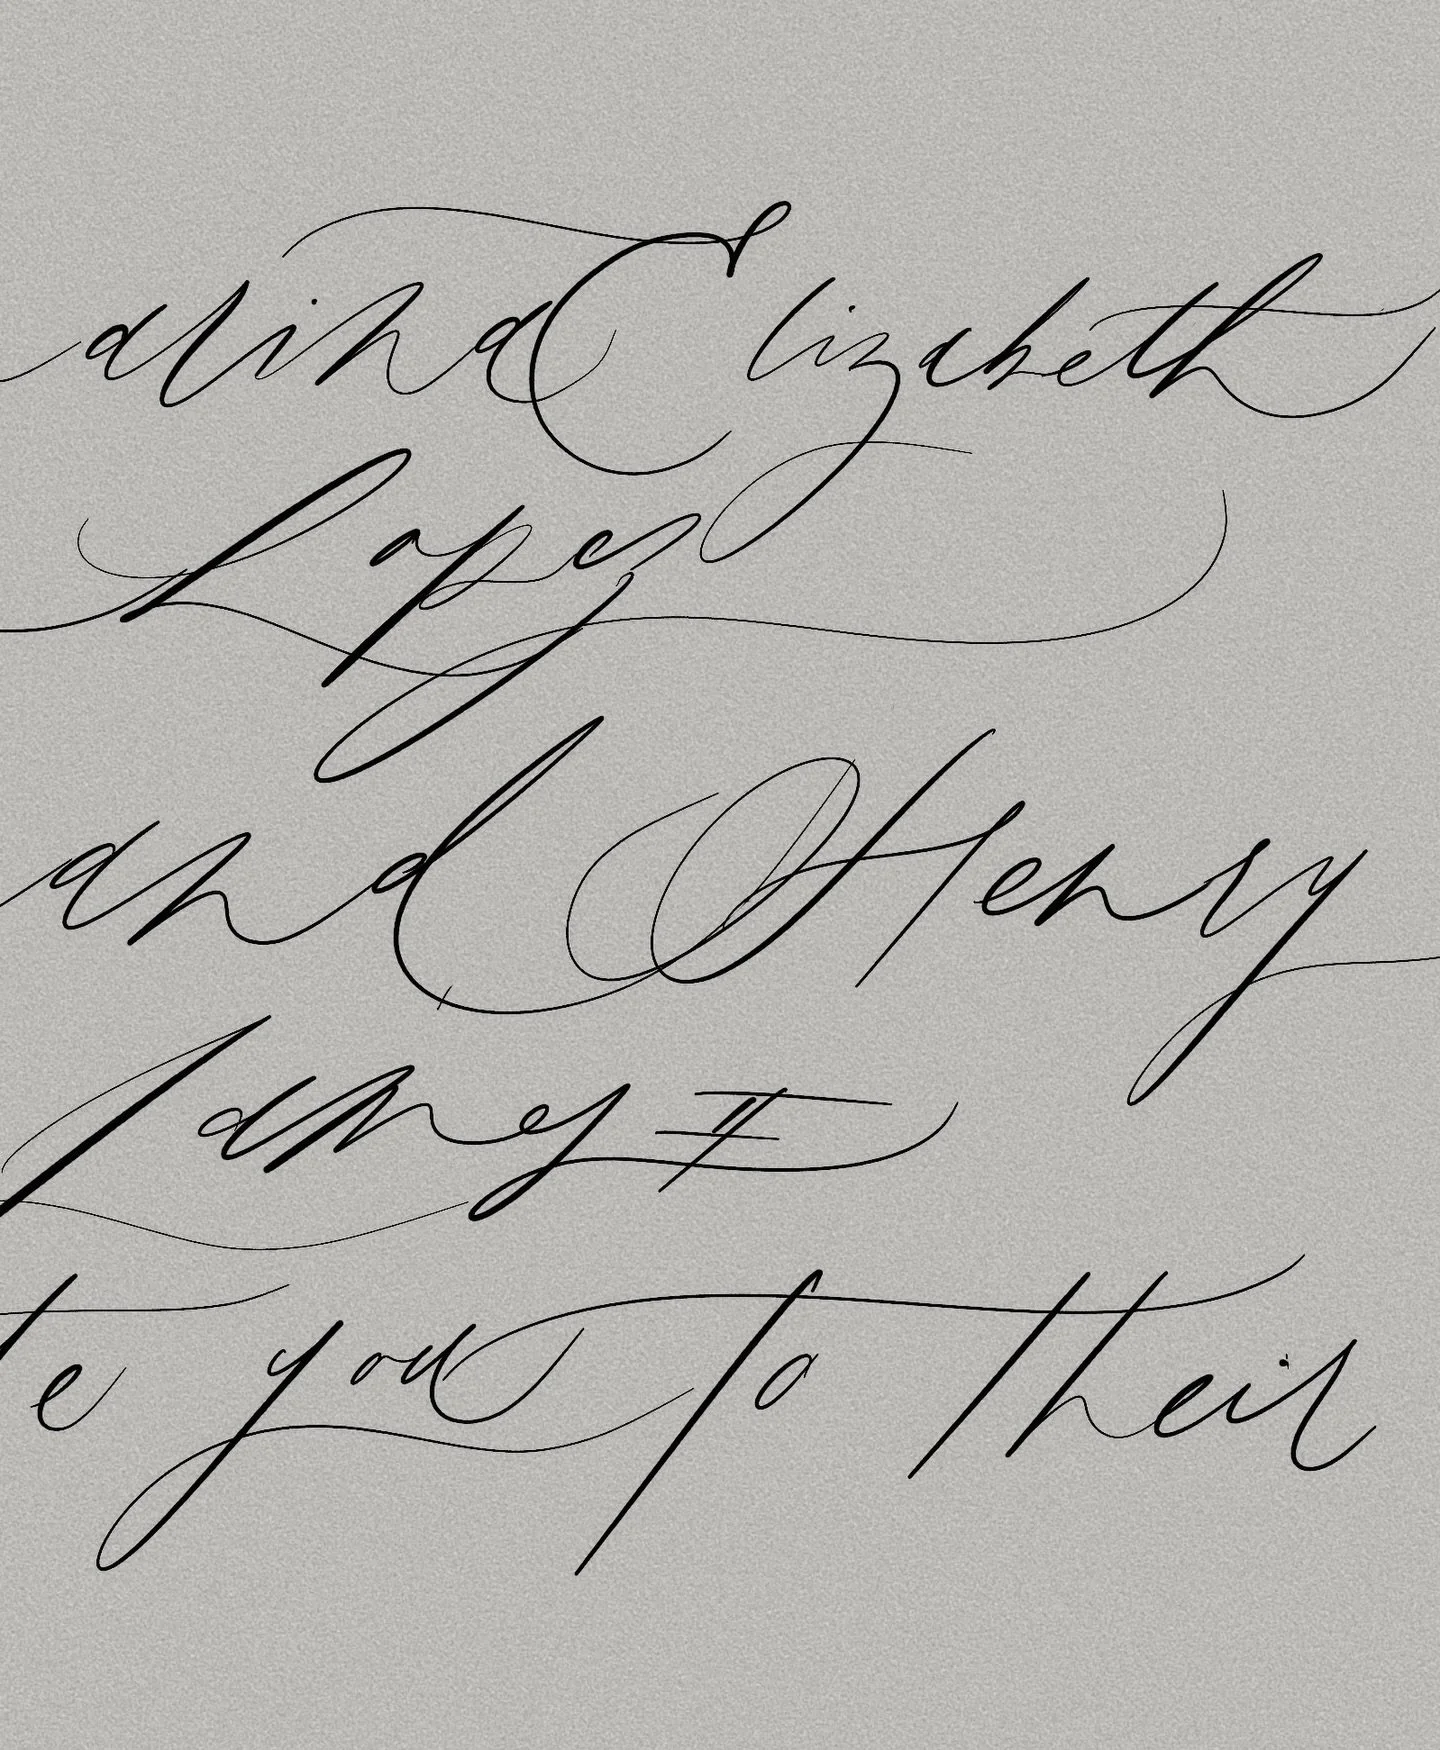 arina Elizabeth
Lopez
and Henry
James II
te you to their